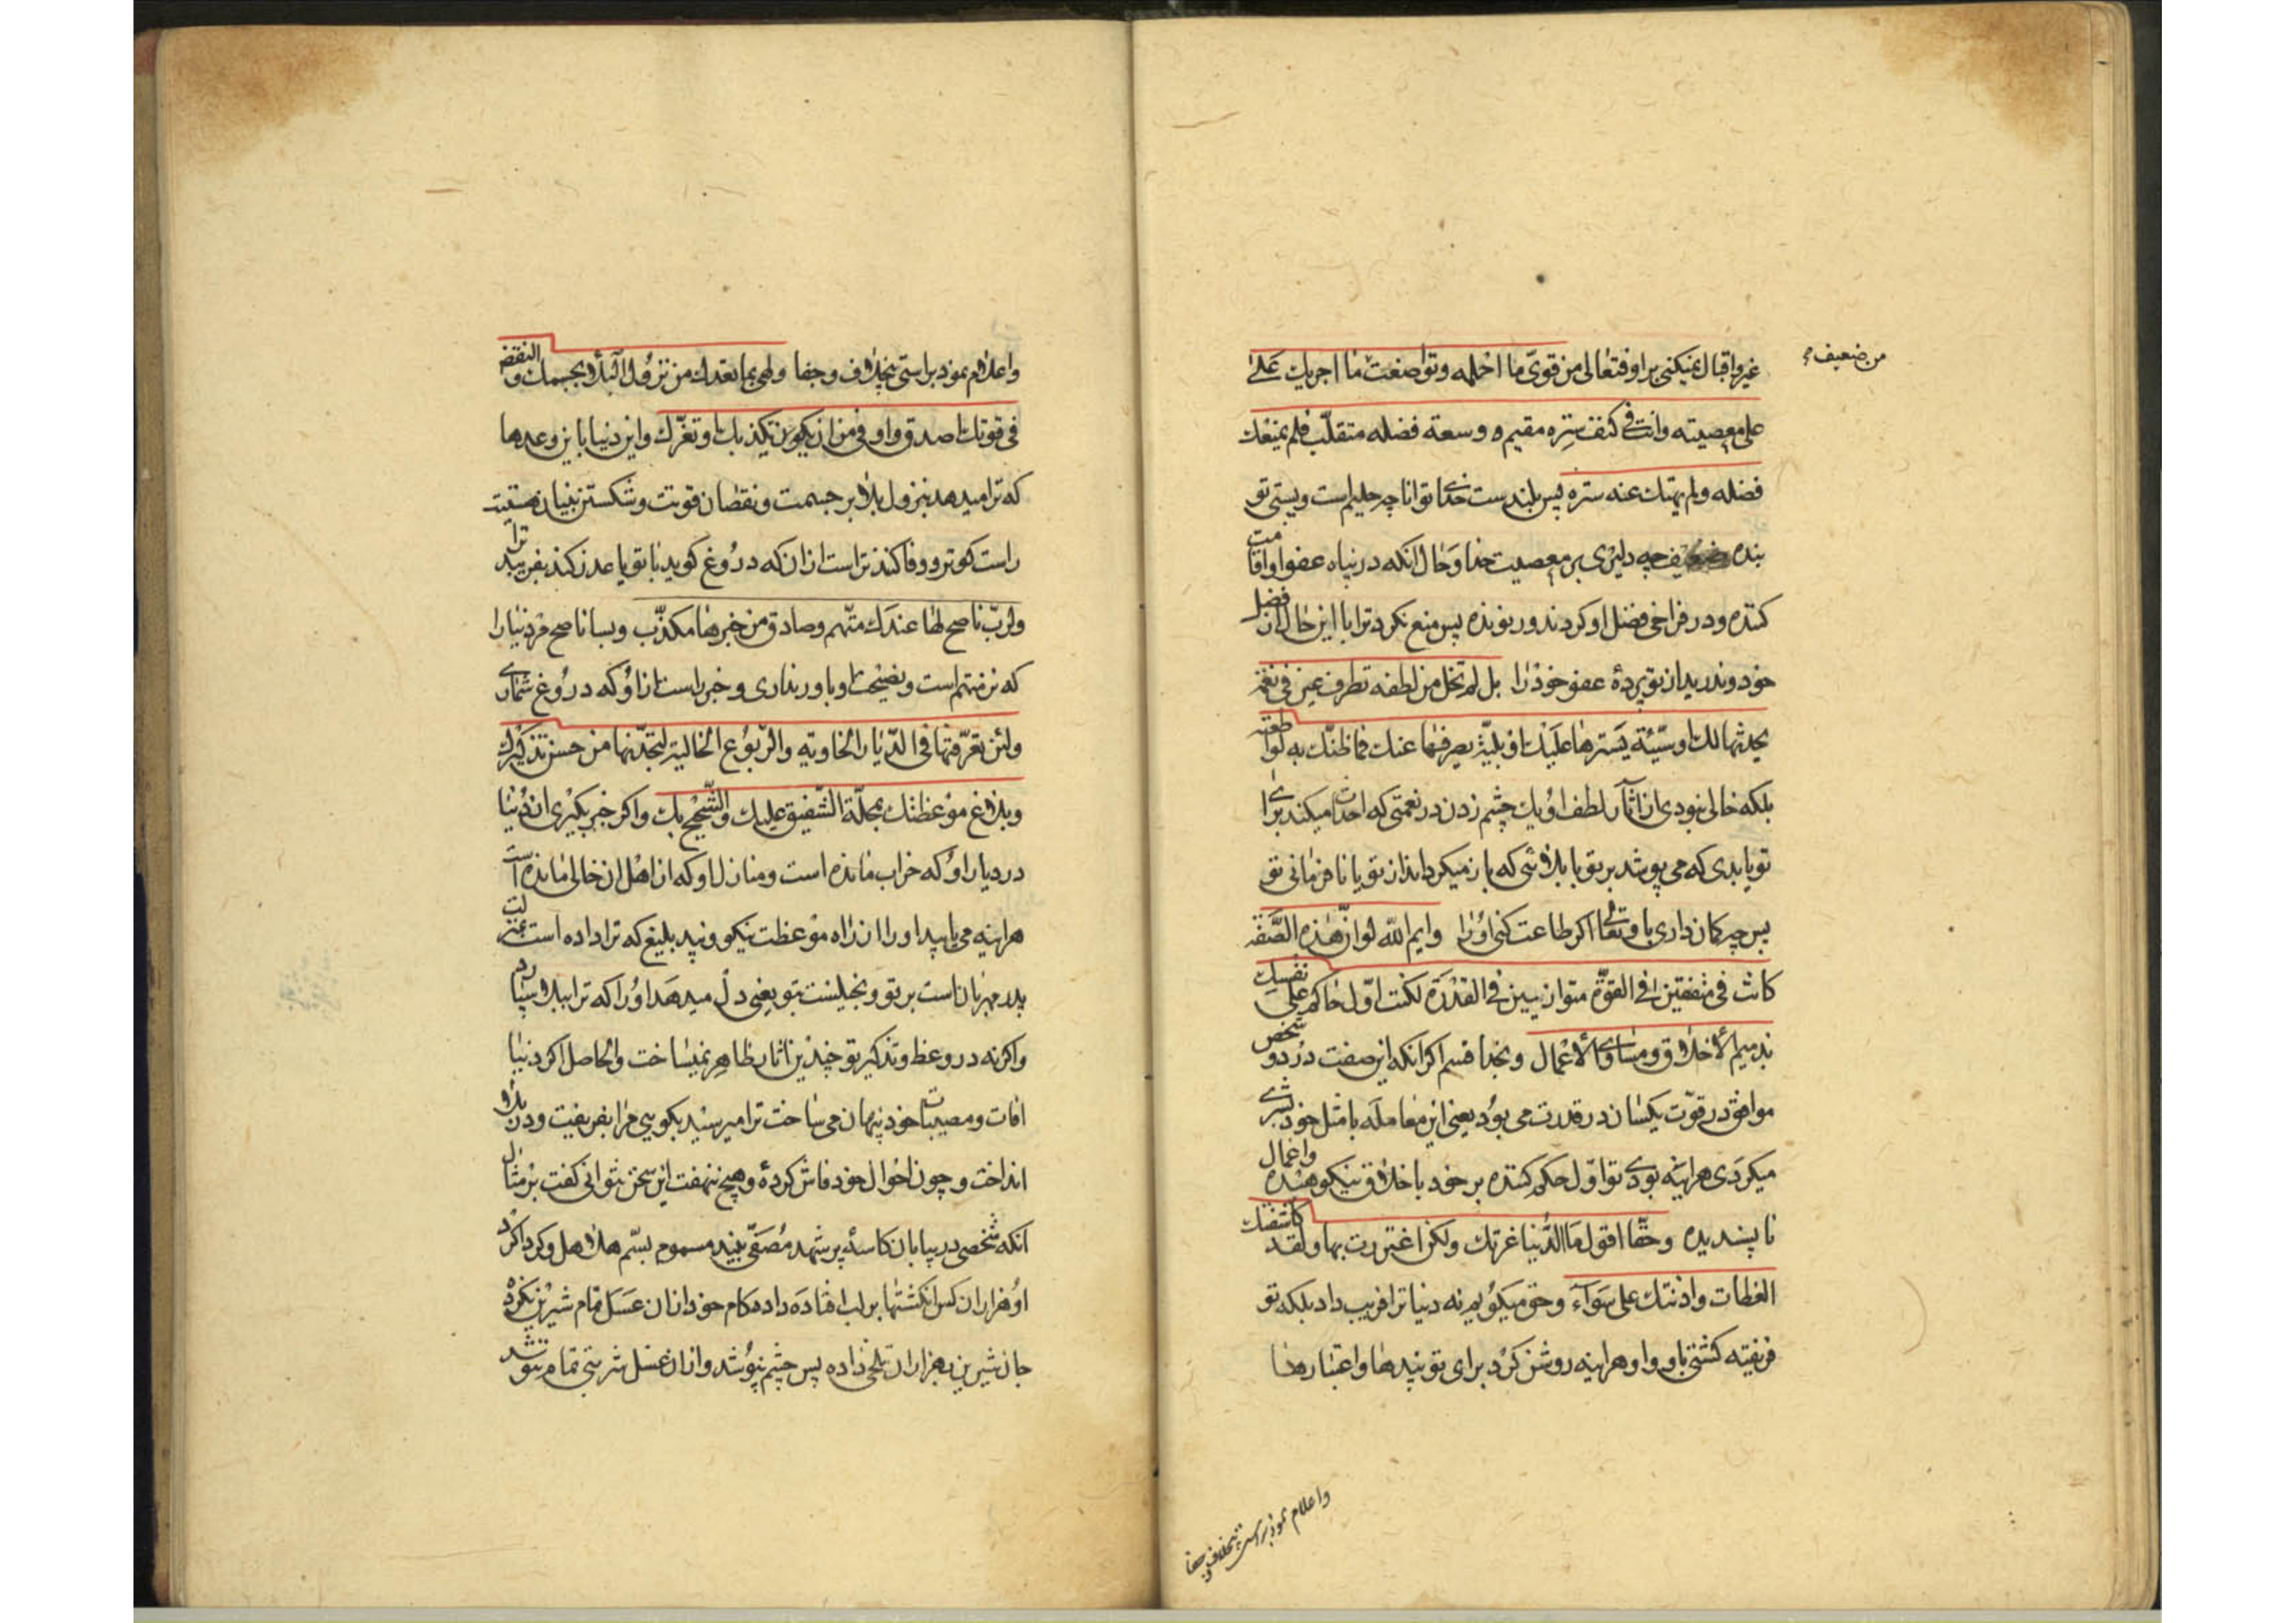 غیر و اقبال نمیکنی بر او فتعالی من قویّ ما احلمه وتواضعت ما اجریك علی
من ضعیف
علی معصیته وانت فی کنف ستره مقیم و وسعة فضله متقلّب فلم یمنعك
فضله ولم یهتك عنه ستره پس بلندست خدای توانا چه حلیم است وپستی تو
بنده ضعیف چه دلیری بر معصیت خدا وحال انکه در پناه عفو او اقامت
کننده ودر فراخی فضل او کردنده پس منع نکرد ترا با این حال از فضل
خود وندرید از تو پردهٔ عفو خود را بل لم تخل من لطفه تطرف عین فی نعمة
یحدثها لك او سیّئة یسترها علیك او بلیّة یصرفها عنك فما ظنّك به لو اطعته
بلکه خالی نبودی از اثار لطف او یك چشم زدن در نعمتی که احداث میکند برای
تو یا بدی که می پوشد بر تو یا بلائی که باز میکرداند از تو با نافرمانی تو
پس چه کمان داری باو تعالی اکر طاعت کنی او را وایم الله لو انّ هذه الصّفة
کانت فی متفقین فی القوّة متوازیین فی القدرة لکنت اوّل حاکم علی نفسك
بذمیم الأخلاق ومساوی الأعمال وبخدا قسم اکر انکه این صفت در دو شخص
موافق در قوّت یکسان در قدرت می بود یعنی این معامله با مثل خود بشری
میکردی هراینه بودی تو اوّل حکم کننده بر خود باخلاق نیکوهیده واعمال
ناپسندیده وحقّا اقول ما الدّنیا غرتك ولکن اغتررت بها ولقد کاشفتك
العظات واذنتك علی سوآء وحق میکویم نه دنیا ترا فریب داد بلکه تو
فریفته کشتی باو واو هراینه روشن کرد برای تو پندها واعتبارها
واعلام نمود براستی بخلاف وجفا
واعلام نمود براستی بخلاف وجفا ولهی بما تعدك من نزول البلاء بجسمك والنقض
فی قوتك اصدق واوفی من ان تکذبك او تغرّك واین دنیا باین وعدها
که ترا میدهد بنزول بلا بر جسمت ونقصان قوتت وشکستن بنیان هستیت
راست کوتر ووفا کننده تراست از ان که دروغ کوید با تو یا عذر کند بفریبد ترا
ولربّ ناصح لها عندك متّهم وصادق من خبرها مکذّب وبسا ناصح مر دنیا را
که نزد تو متهم است ونصیحت او باور نداری وخبر راست از او که دروغ شماری
ولئن تعرّفتها فی الدّیار الخاویة والرّبوع الخالیة لتجدنّها من حسن تذکیرك
وبلاغ موعظتك بمحلّة الشّفیق علیك والشّحیح بك واکر خبر بکیری از دنیا
در دیار او که خراب مانده است ومنازل او که از اهل ان خالی مانده است
هراینه می یابید او را از راه موعظت نیکو وپند بلیغ که ترا داده است بمنزلت
پدر مهربان است بر تو وبخیلست بتو یعنی دل میدهد او را که ترا ببلا سپارد
واکر نه در وعظ وتذکیر تو چندین اثار ظاهر نمیساخت والحاصل اکر دنیا
افات ومصیبات خود پنهان می ساخت ترا میرسید بکویی مرا بفریفت ودر بلا
انداخت وچون احوال خود فاش کرده وهیچ ننهفت این سخن نتوانی کفت بر مثال
انکه شخصی در بیابان کاسهٔ پر شهد مصفّی بیند مسموم بسمّ هلاهل وکرداکرد
او هزاران کس انکشتها بر لب افتاده داده کام خود از ان عسل تمام شیرین نکرده
جان شیرین بهزاران تلخی داده پس چشم بپوشد واز ان عسل شربتی تمام بنوشد